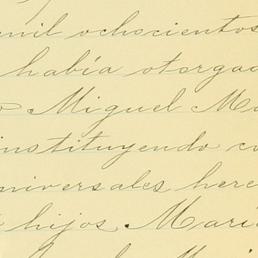 mil ochocientos
había otorgad
Miguel M
instituyendo c
niversales here
hijos Marí